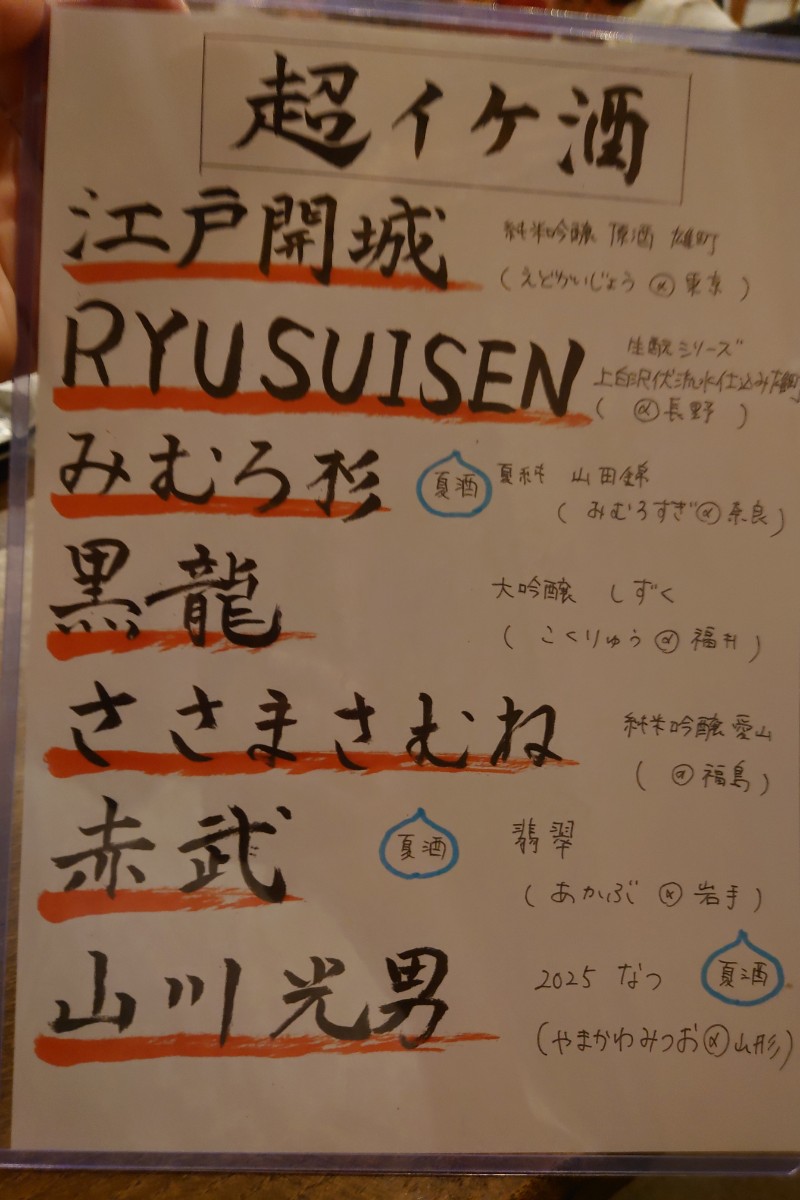 超イケ酒
江戸開城
純米吟醸 原酒 雄町
(えどかいじょう @ 東京)
RYUSUISEN
生酛シリーズ
上白沢伏流水仕込み雄町
( @ 長野 )
みむろ杉
夏酒
夏純 山田錦
(みむろすぎ @ 奈良)
黒龍
大吟醸 しずく
(こくりゅう @ 福井)
ささまさむね
純米吟醸 愛山
( @ 福島)
赤武
夏酒
翡翠
(あかぶ @ 岩手)
山川光男
2025 なつ
夏酒
(やまかわみつお @ 山形)